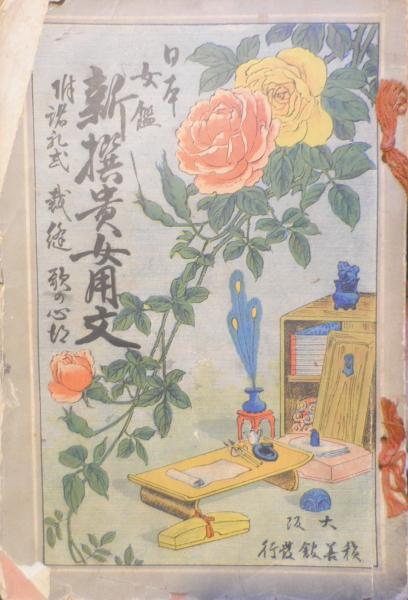 日本
女鑑
新撰貴女用文
附諸礼式 裁縫 歌の心得
大阪
積善館發行